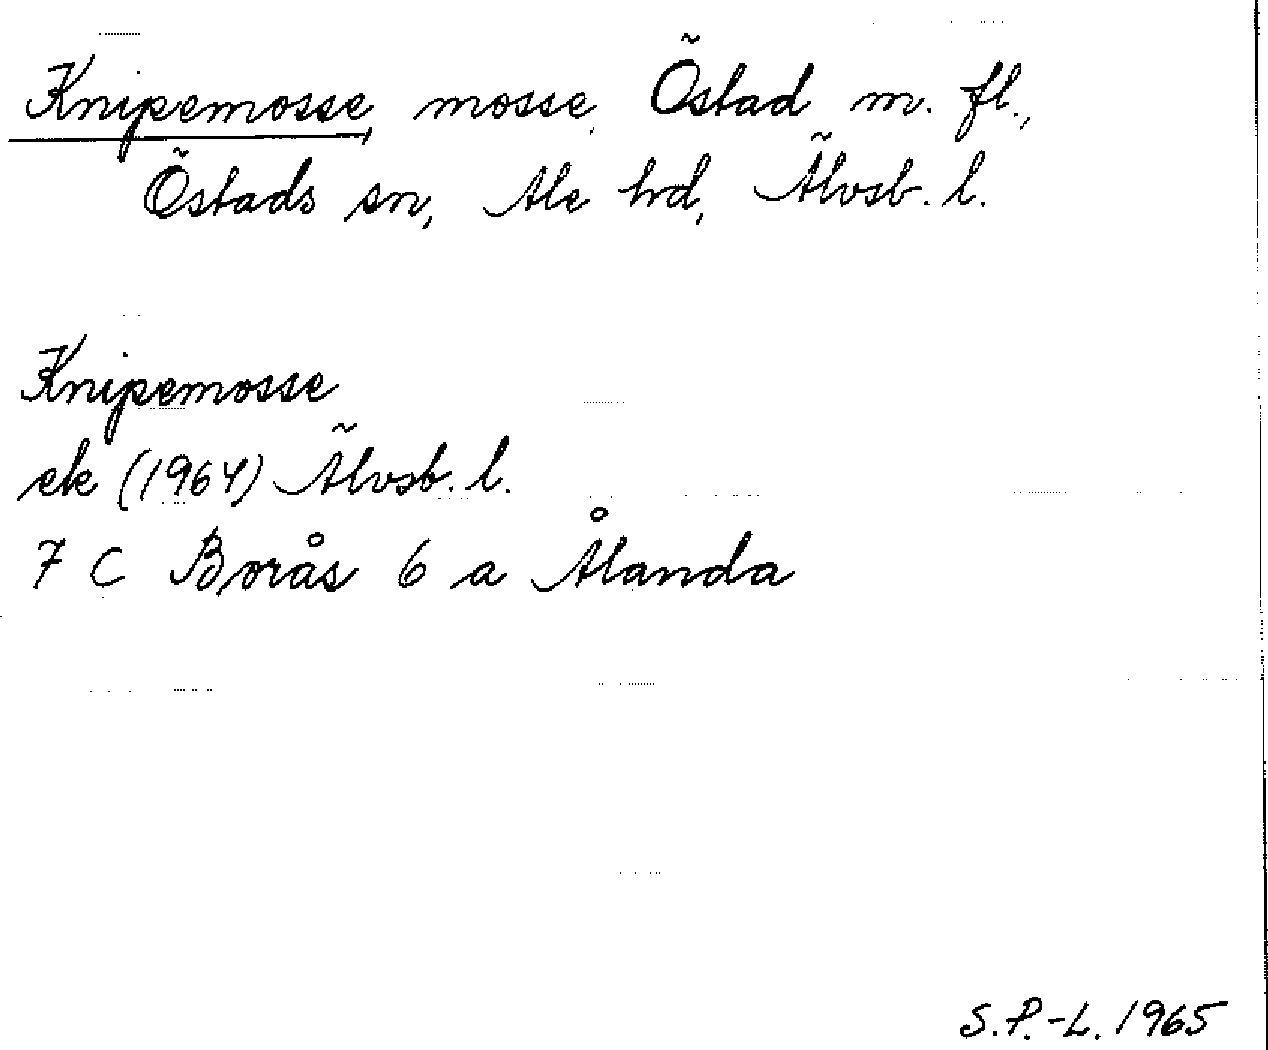 Knipemosse, mosse, Östad m. fl.,
Östads sn, Ale hd, Älvsb. l.
Knipemosse
ek (1964) Älvsb. l.
7 C Borås 6 a Ålanda
S.P.-L. 1965